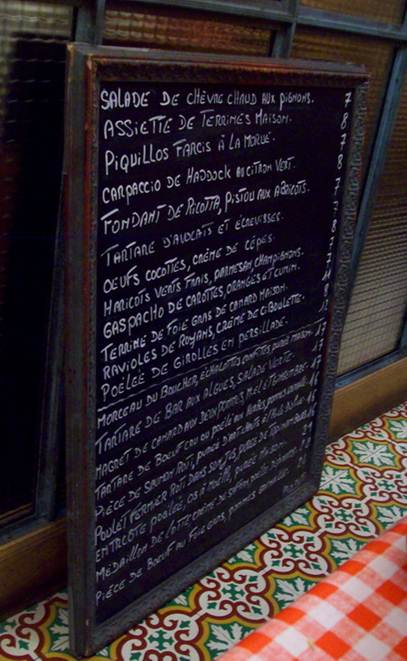 SALADE DE CHÈVRE CHAUD AUX PIGNONS. 7
ASSIETTE DE TERRINES MAISON. 8
PIQUILLOS FARCIS À LA MORUE. 7
CARPACCIO DE HADDOCK AU CITRON VERT. 8
FONDANT DE RICOTTA, PISTOU AUX ABRICOTS. 7
TARTARE D'AVOCATS ET ÉCREVISSES.
OEUFS COCOTTES, CRÈME DE CÉPES.
HARICOTS VERTS FRAIS, PARMESAN, CHAMPIGNONS.
GASPACHO DE CAROTTES, ORANGES ET CUMIN.
TERRINE DE FOIE GRAS DE CANARD MAISON.
RAVIOLES DE ROYANS, CRÈME DE CIBOULETTE.
POÊLÉE DE GIROLLES EN PERSILLADE.
MORCEAU DU BOUCHER, ÉCHALOTTES CONFITES, PURÉE MAISON.
TARTARE DE BAR AUX ALGUES, SALADE VERTE.
MAGRET DE CANARD AUX DEUX POIVRES, MIEL &
TARTARE DE BOEUF CRU OU POÊLÉ AUX HERBES, POMMES
PIÈCE DE SAUMON RÔTI, PURÉE
POULET FERMIER RÔTI DANS SON JUS, PURÉE DE
ENTRECÔTE POÊLÉE, OS À MOELLE, PURÉE MAISON.
MÉDAILLON DE LOTTE, CRÈME DE SAFRAN,
PIÈCE DE BOEUF AU FOIE GRAS, POMMES